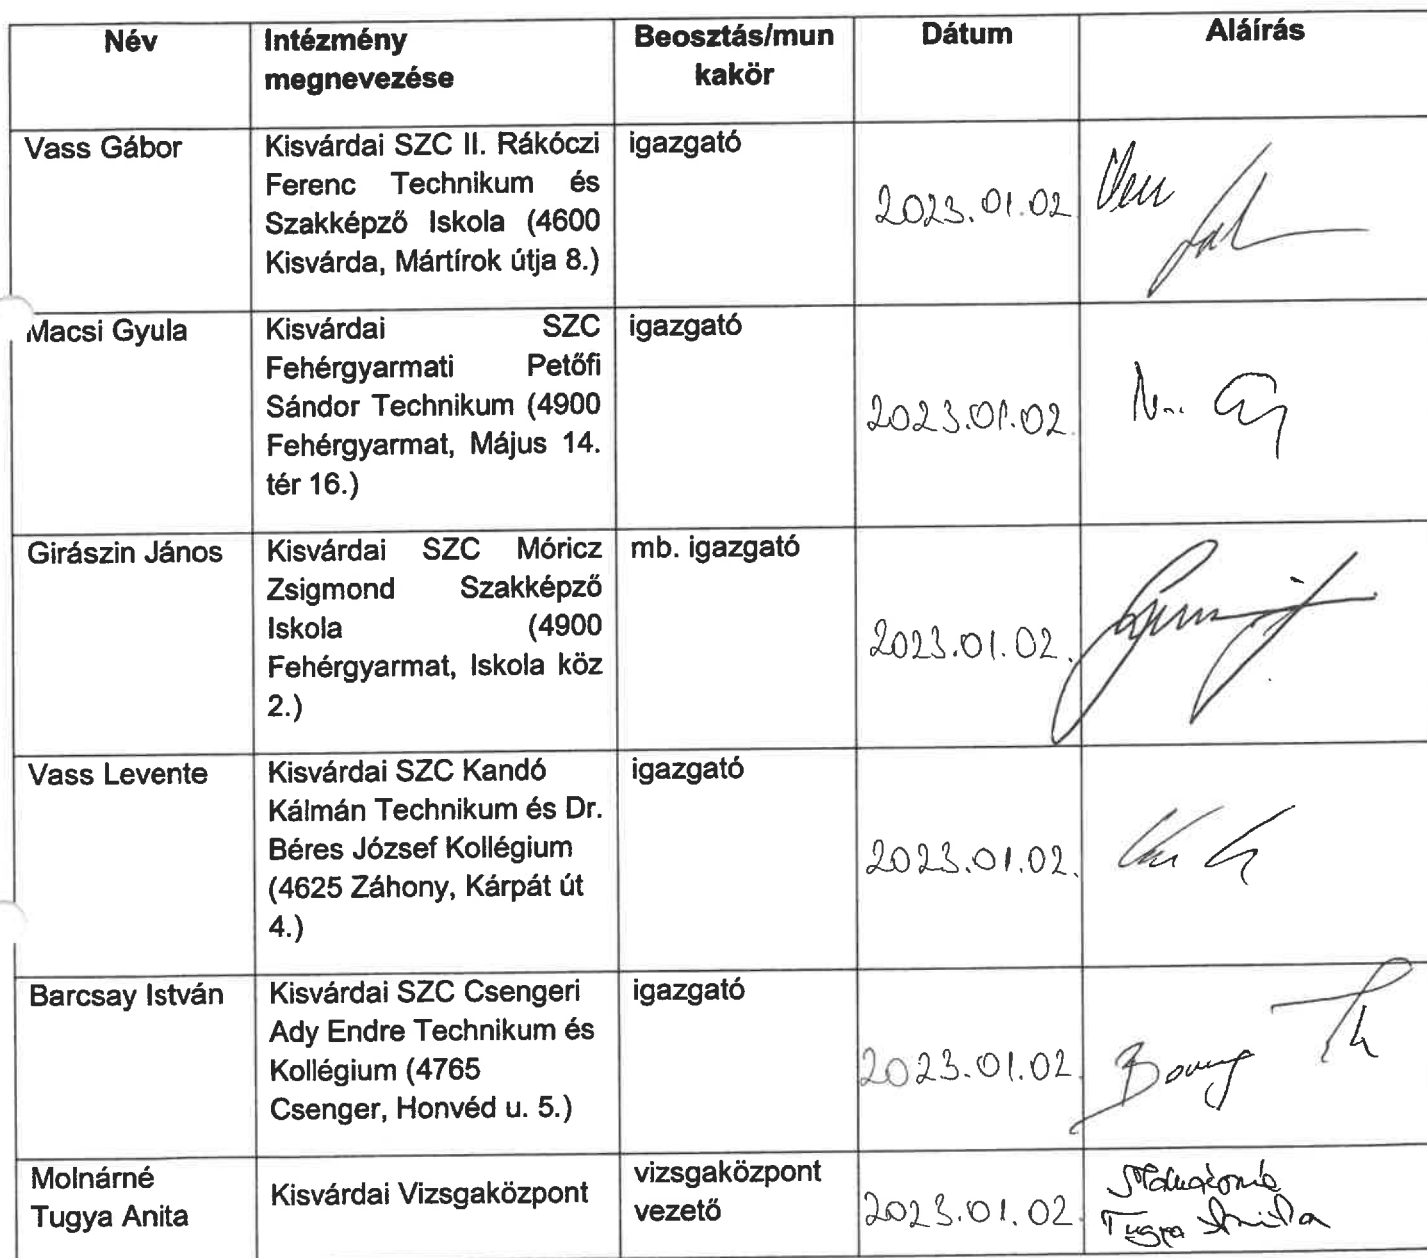 Név Intézmény megnevezése Beosztás/munkakör Dátum Aláírás
Vass Gábor
Kisvárdai SZC II. Rákóczi
Ferenc Technikum és
Szakképző Iskola (4600
Kisvárda, Mártírok útja 8.)
igazgató
2023.01.02
Macsi Gyula
Kisvárdai SZC
Fehérgyarmati Petőfi
Sándor Technikum (4900
Fehérgyarmat, Május 14.
tér 16.)
igazgató
2023.01.02.
Girászin János
Kisvárdai SZC Móricz
Zsigmond Szakképző
Iskola (4900
Fehérgyarmat, Iskola köz
2.)
mb. igazgató
2023.01.02.
Vass Levente
Kisvárdai SZC Kandó
Kálmán Technikum és Dr.
Béres József Kollégium
(4625 Záhony, Kárpát út
4.)
igazgató
2023.01.02.
Barcsay István
Kisvárdai SZC Csengeri
Ady Endre Technikum és
Kollégium (4765
Csenger, Honvéd u. 5.)
igazgató
2023.01.02.
Molnárné
Tugya Anita
Kisvárdai Vizsgaközpont
vizsgaközpont
vezető
2023.01.02.
Molnárné
Tugya Anita